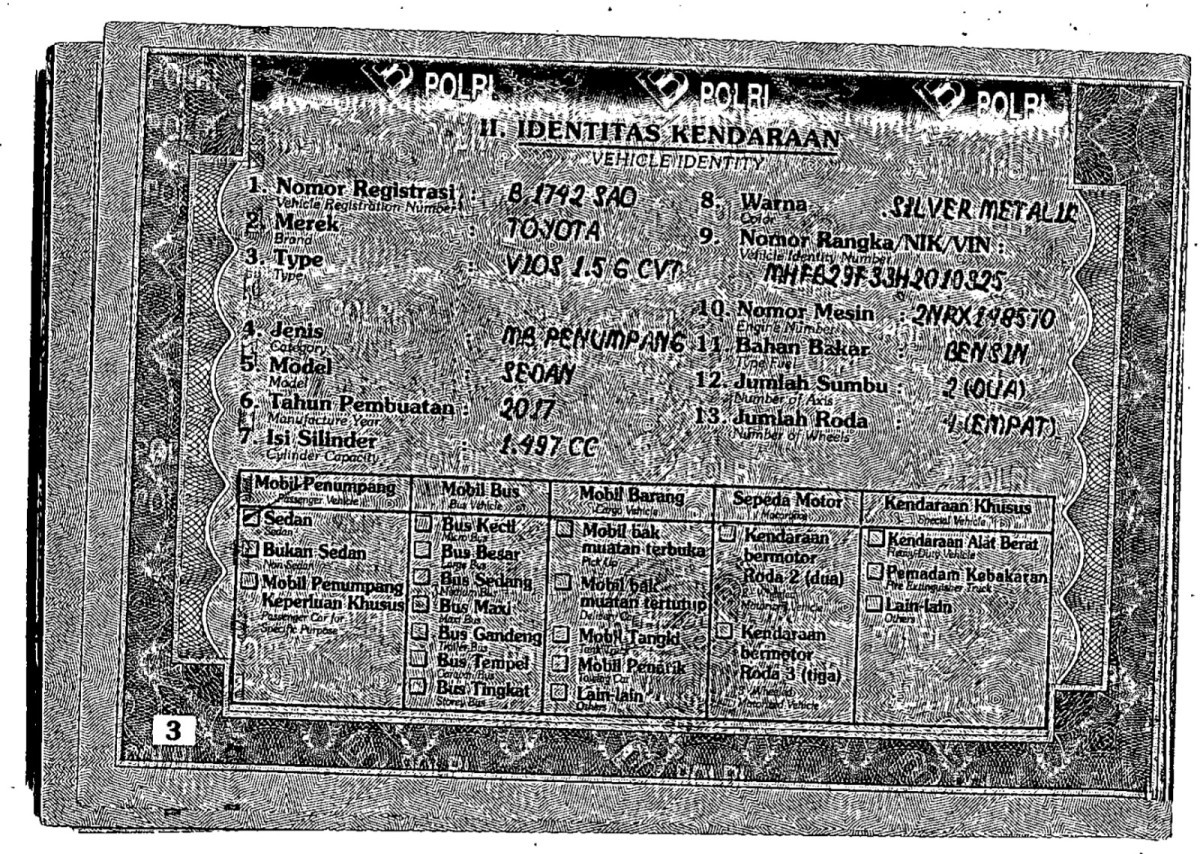 POLRI POLRI POLRI
II. IDENTITAS KENDARAAN
VEHICLE IDENTITY
1. Nomor Registrasi : B 1742 SAO
Vehicle Registration Number
2. Merek : TOYOTA
Brand
3. Type : VIOS 1.5 G CVT
Type
4. Jenis : MB PENUMPANG
Category
5. Model : SEDAN
Model
6. Tahun Pembuatan : 2017
Manufacture Year
7. Isi Silinder : 1.497 CC
Cylinder Capacity
8. Warna : SILVER METALIK
Color
9. Nomor Rangka/NIK/VIN :
Vehicle Identity Number
MHFB29F33H2010325
10. Nomor Mesin : 2NRX148570
Engine Number
11. Bahan Bakar : BENSIN
Type Fuel
12. Jumlah Sumbu : 2 (DUA)
Number of Axis
13. Jumlah Roda : 4 (EMPAT)
Number of Wheels
Mobil Penumpang
Passenger Vehicle
Sedan
Sedan
Bukan Sedan
Non Sedan
Mobil Penumpang
Keperluan Khusus
Passenger Car for
Specific Purpose
Mobil Bus
Bus Vehicle
Bus Kecil
Micro Bus
Bus Besar
Large Bus
Bus Sedang
Medium Bus
Bus Maxi
Maxi Bus
Bus Gandeng
Trailer Bus
Bus Tempel
Caravan Bus
Bus Tingkat
Storey Bus
Mobil Barang
Cargo Vehicle
Mobil bak
muatan terbuka
Pick Up
Mobil bak
muatan tertutup
Delivery Car
Mobil Tangki
Tank Truck
Mobil Penarik
Towing Car
Lain-lain
Others
Sepeda Motor
Motorcycle
Kendaraan
bermotor
Roda 2 (dua)
2 Wheeled
Motorized Vehicle
Kendaraan
bermotor
Roda 3 (tiga)
3 Wheeled
Motorized Vehicle
Kendaraan Khusus
Special Vehicle
Kendaraan Alat Berat
Heavy-Duty Vehicle
Pemadam Kebakaran
Fire Extinguisher Truck
Lain-lain
Others
3